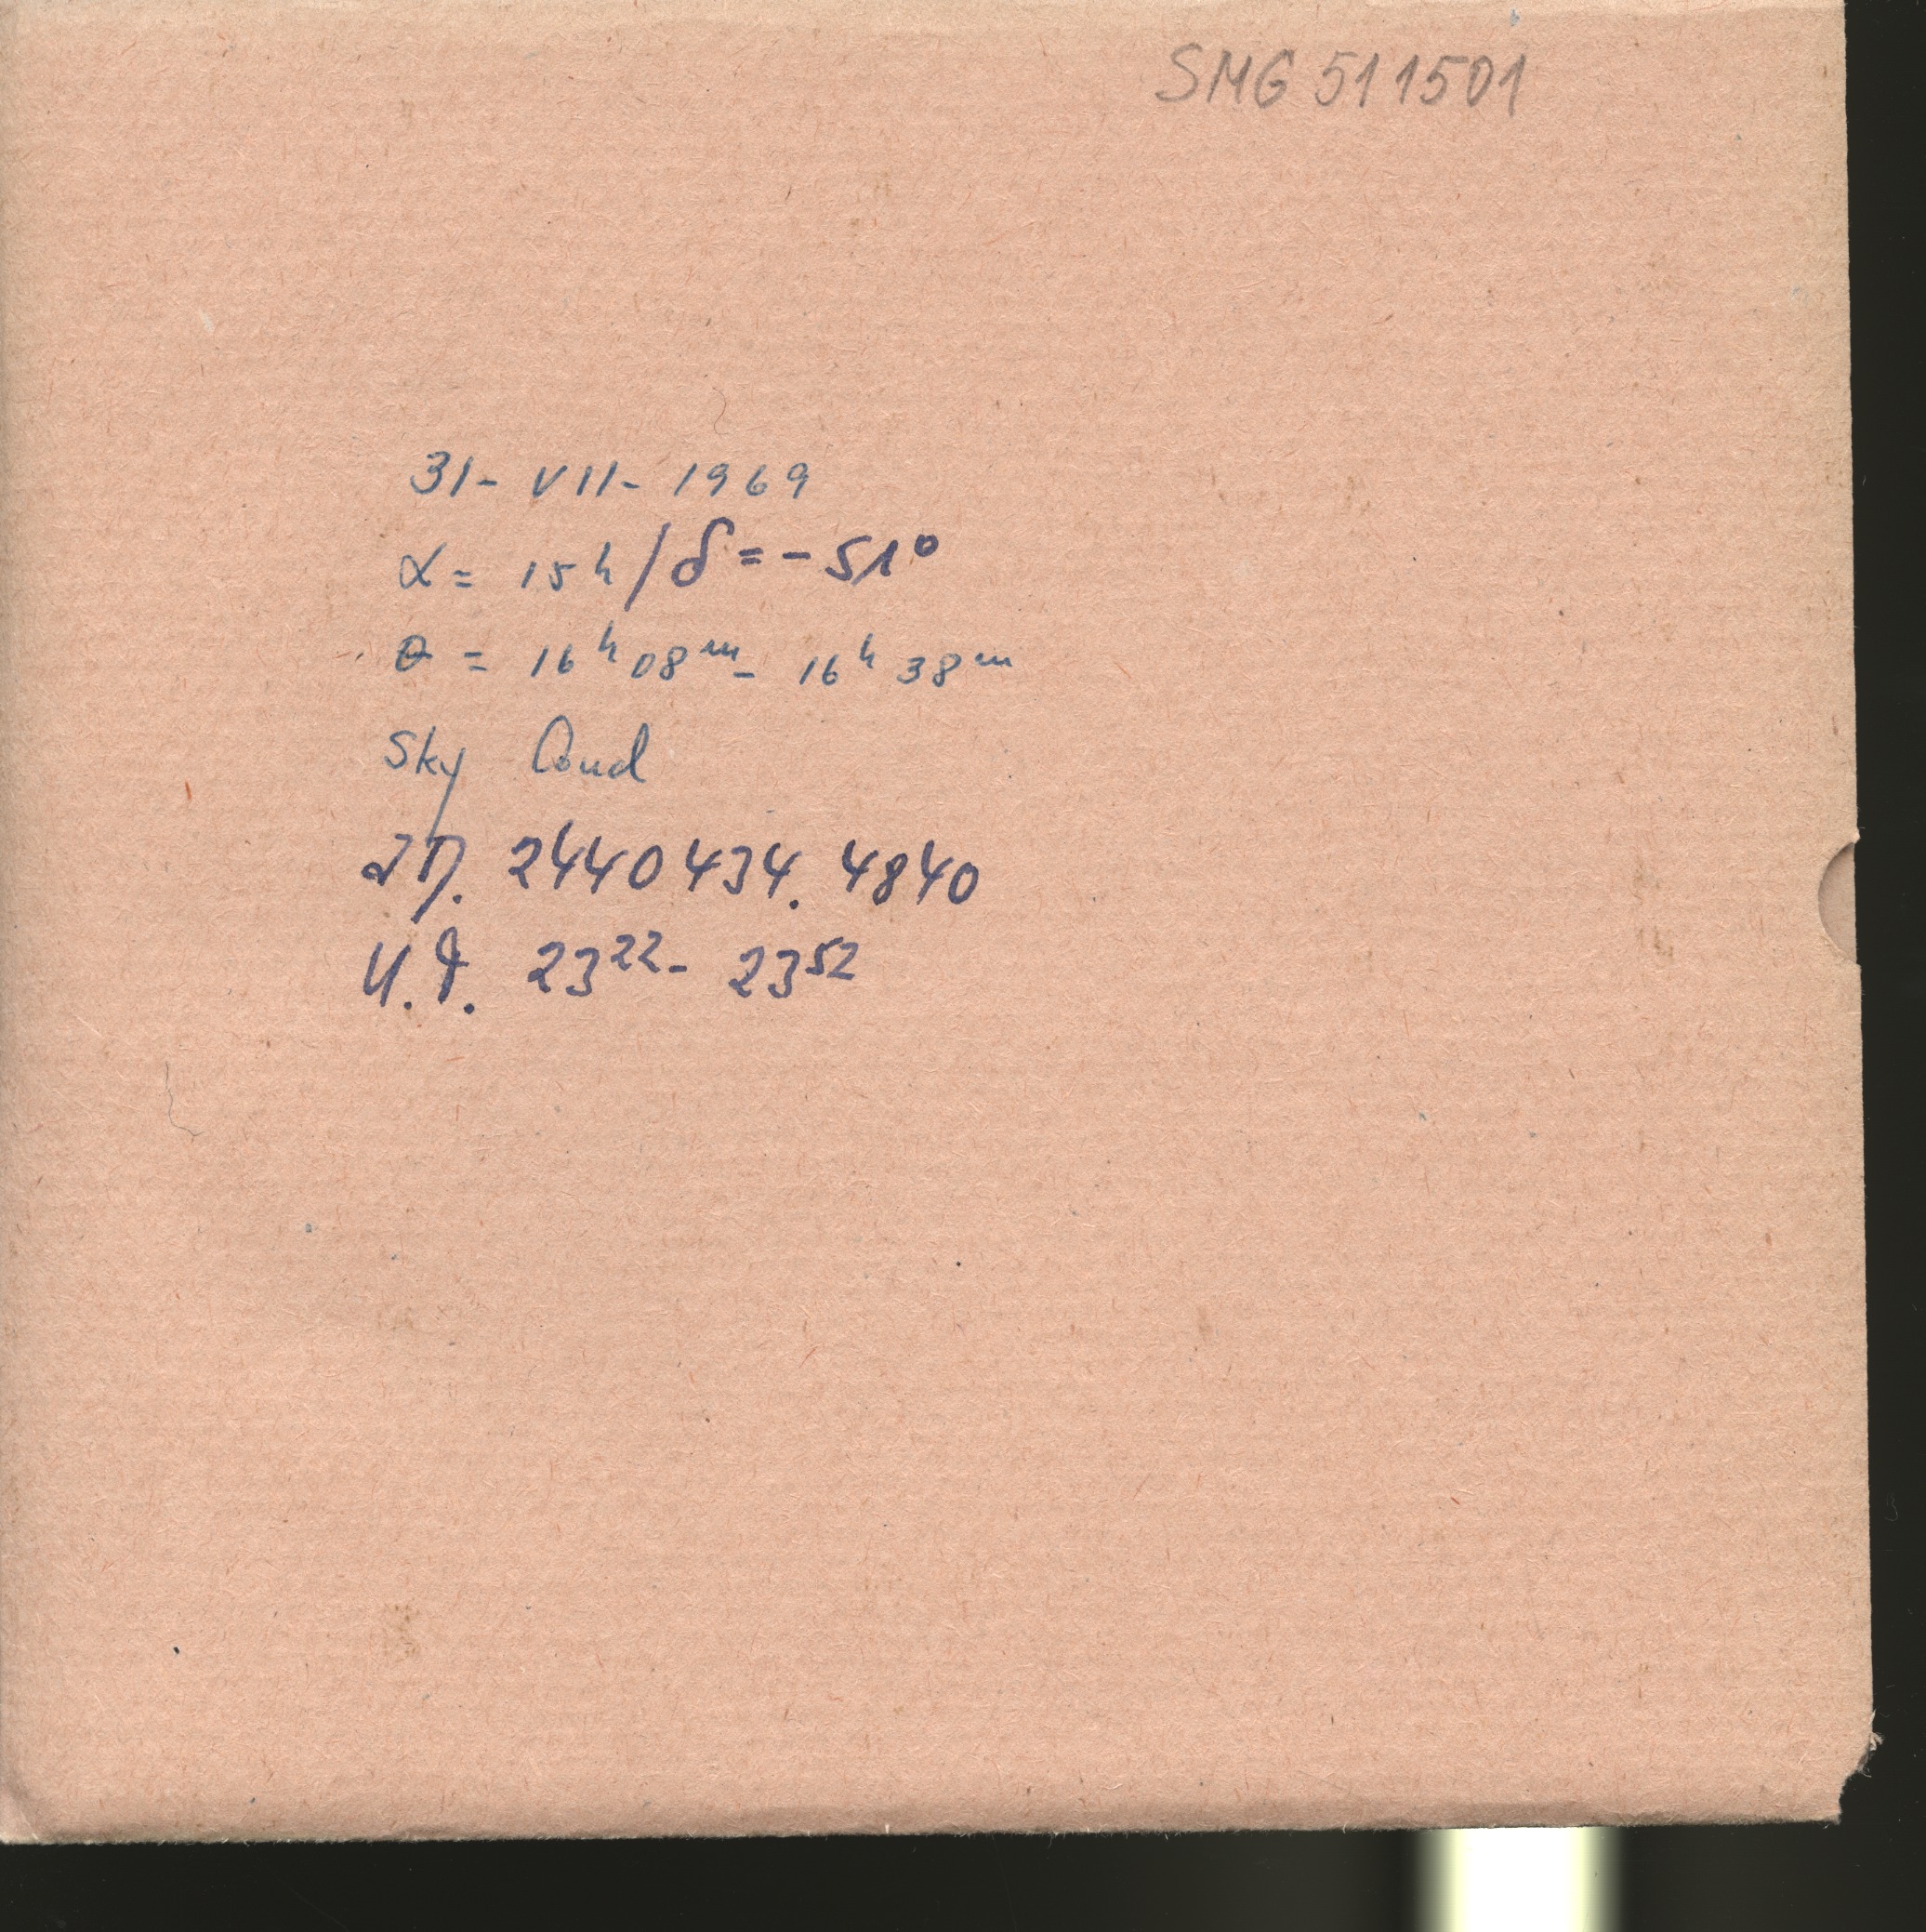 SMG 511501
31- VII- 1969
α = 15h / δ = - 51°
θ = 16ʰ 08ᵐ - 16ʰ 38ᵐ
Sky Cond
J.D. 2440434.4840
U.T. 23²²- 23⁵²